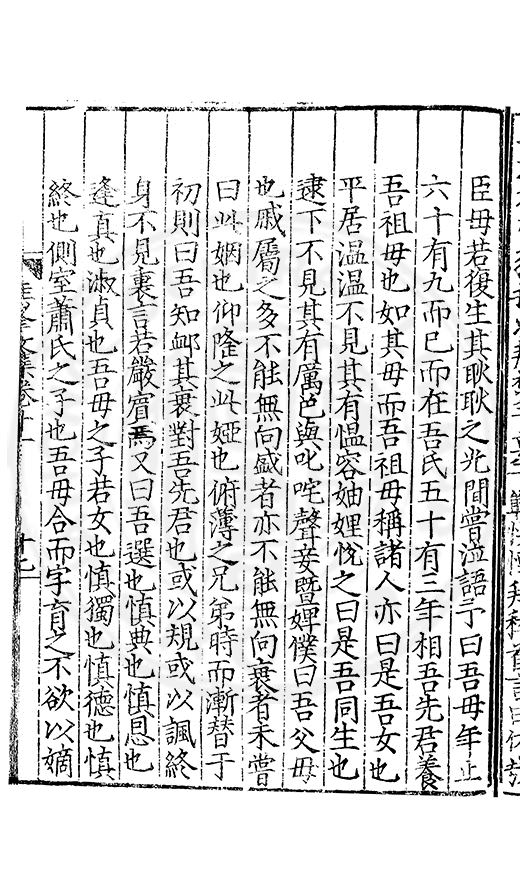 臣母若復生其耿耿之光間嘗泣語予曰吾母年止
六十有九而已而在吾氏五十有三年相吾先君養
吾祖母也如其母而吾祖母稱諸人亦曰是吾女也
平居温温不見其有愠容妯娌悅之曰是吾同生也
逮下不見其有厲色與叱咤聲妾暨婢僕曰吾父母
也戚屬之多不能無向盛者亦不能無向衰者未嘗
曰此姻也仰隆之此婭也俯薄之兄弟時而漸替于
初則曰吾知衈其衷對吾先君也或以規或以諷終
身不見褻言若嚴賓焉又曰吾選也慎典也慎息也
逢真也淑貞也吾母之子若女也慎獨也慎德也慎
終也側室蕭氏之子也吾母合而字育之不欲以嫡
文集卷十一
十九